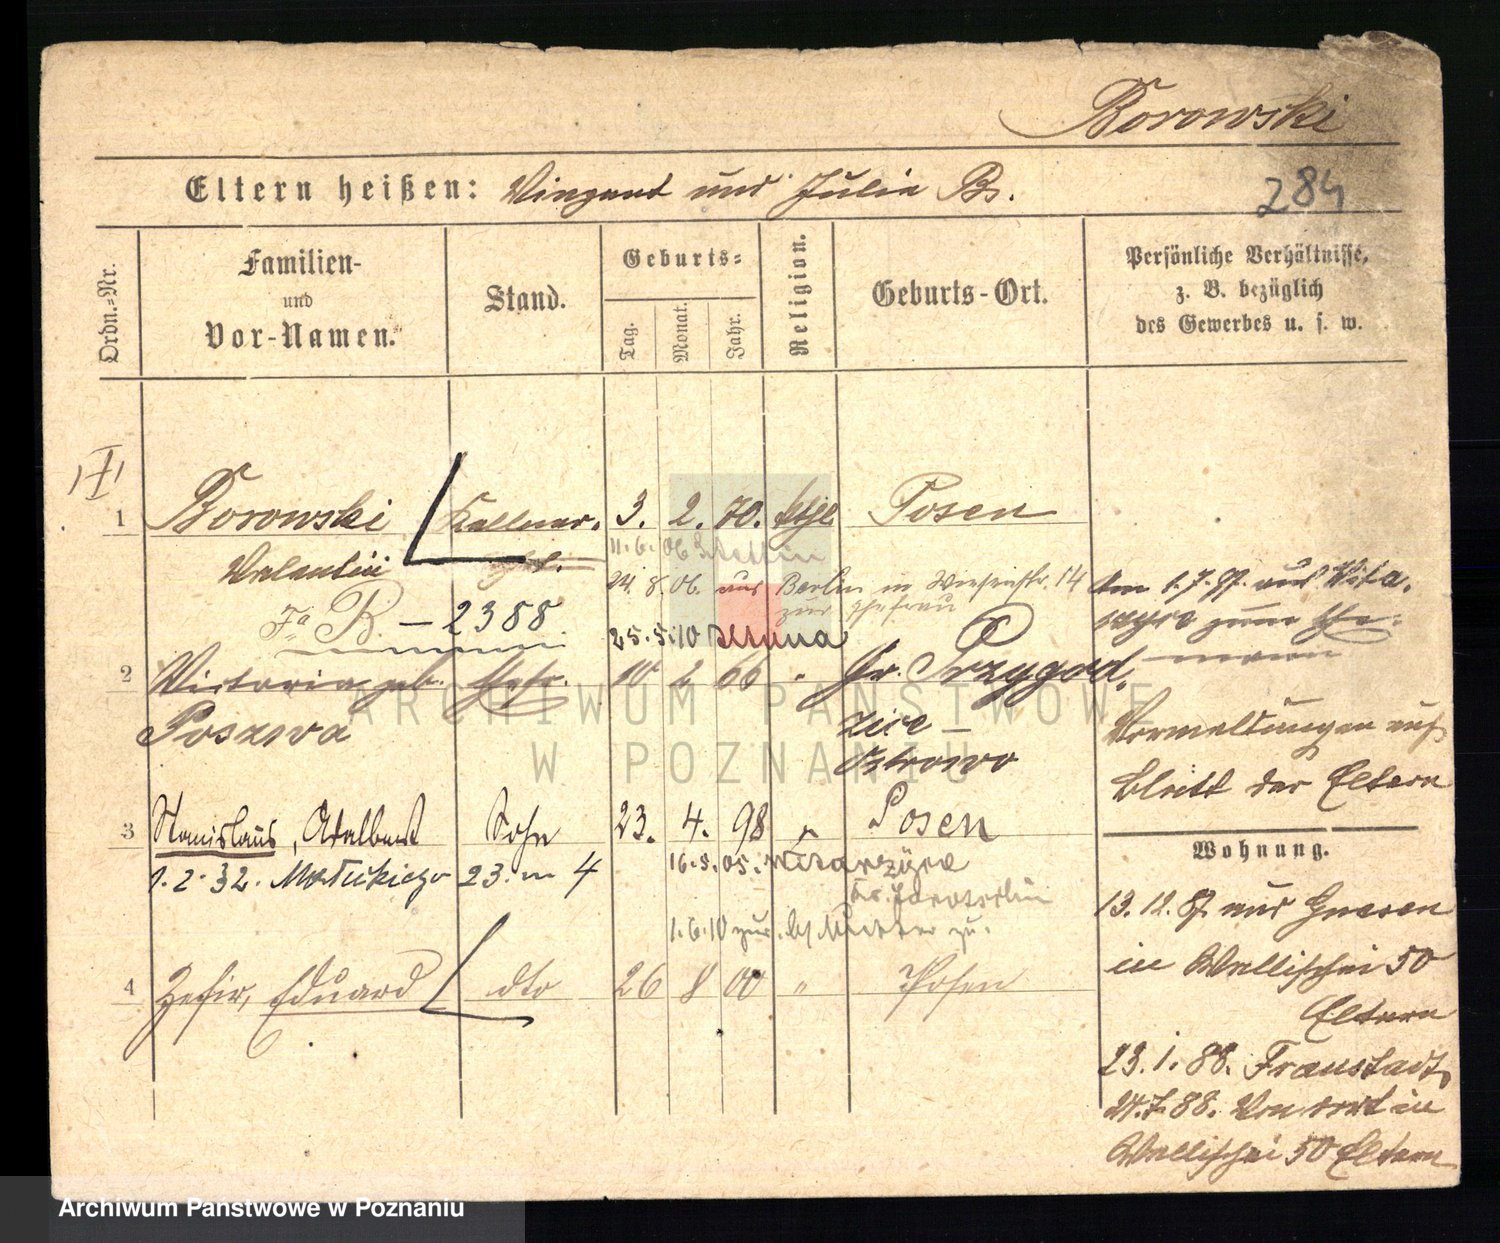 Borowski
Eltern heißen: Vinzent und Julia B.
284
Ordn.-Nr.
Familien- und Vor-Namen.
Stand.
Geburts-
Tag. Monat. Jahr.
Religion.
Geburts-Ort.
Persönliche Verhältnisse,
z. B. bezüglich
des Gewerbes u. s. w.
1 Borowski Kellner. 3. 2. 70. kath. Posen
11.6.06 Stettin
Valentin
24.8.06. aus Berlin in Wiesenstr. 14
zur Ehefrau
Fa B. – 2388
25.5.10
Am 1.7.97 aus
zum
2 Victoria geb. Ehefr. 10 2 66 " Gr. Przygod
Poszwa
zice –
Ostrowo
Vermeldungen auf
Blatt der Eltern
3 Stanislaus, Adalbert Sohn 23. 4. 98 " Posen
Wohnung.
1.2.32. Małeckiego 23 m 4
16.5.05.
1.6.10 zur Mutter zu.
4 Zefir, Eduard dto 26 8 00 " Posen
13.12.87 aus Gnesen
in Wallischei 50
Eltern
23.1.88. Fraustadt
24.7.88. Von dort in
Wallischei 50 Eltern
ARCHIWUM PAŃSTWOWE
W POZNANIU
Archiwum Państwowe w Poznaniu